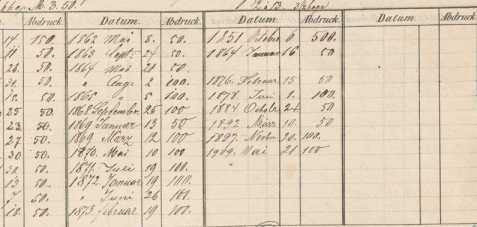 Abdruck. Datum. Abdruck. Datum. Abdruck. Datum. Abdruck
14 150. 1862 Mai 8. 50. 1851 October 6 500.
11 50. 1863 Sept. 24 50. 1864 Januar 16 50.
50. 1864 Mai 21 50.
50. " Aug. 2 100. 1876. Februar 15 50
15. 50. 1865 5 100. 1878. Juni 8. 100.
25 50. 1868 September 25 100 1884 October 24 50
23. 50. 1869 Januar 13 50 1892. März 10. 50
27. 50. 1869 März 12 100 1897. Novbr. 20. 100.
30 50. 1870. Mai 10 100 1904. Mai 21 100
50. 1871. Juli 19 100.
13 50. 1872. Januar 19 100.
50. " Juni 26 100.
18. 50. 1873. Februar 19 100.